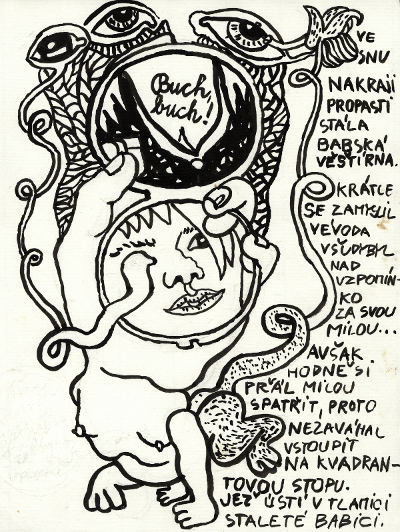 Buch,
buch!
VE
SNU
NA KRAJI
PROPASTI
STÁLA
BABSKÁ
VĚŠTÍRNA.
KRÁTCE
SE ZAMYSLIL
VEVODA
VŠUDYBYL
NAD
VZPOMÍN-
KO
ZA SVOU
MILOU...
AVŠAK
HODNĚ SI
PŘÁL MILOU
SPATŘIT, PROTO
NEZAVÁHAL
VSTOUPIT
NA KVADRAN-
TOVOU STOPU.
JEŽ ÚSTÍ V TLAMICI
STALETÉ BABICI.